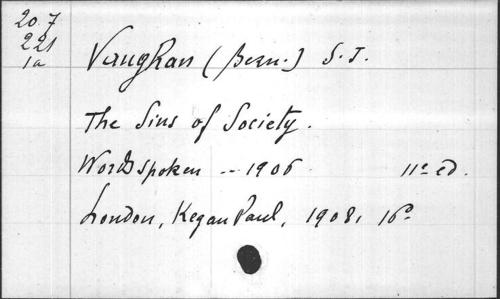 20.7
221
1a
Vaughan (Bern.) S.J.
The Sins of Society.
Words spoken -- 1906 11ª ed.
London, Kegan Paul, 1908, 16º